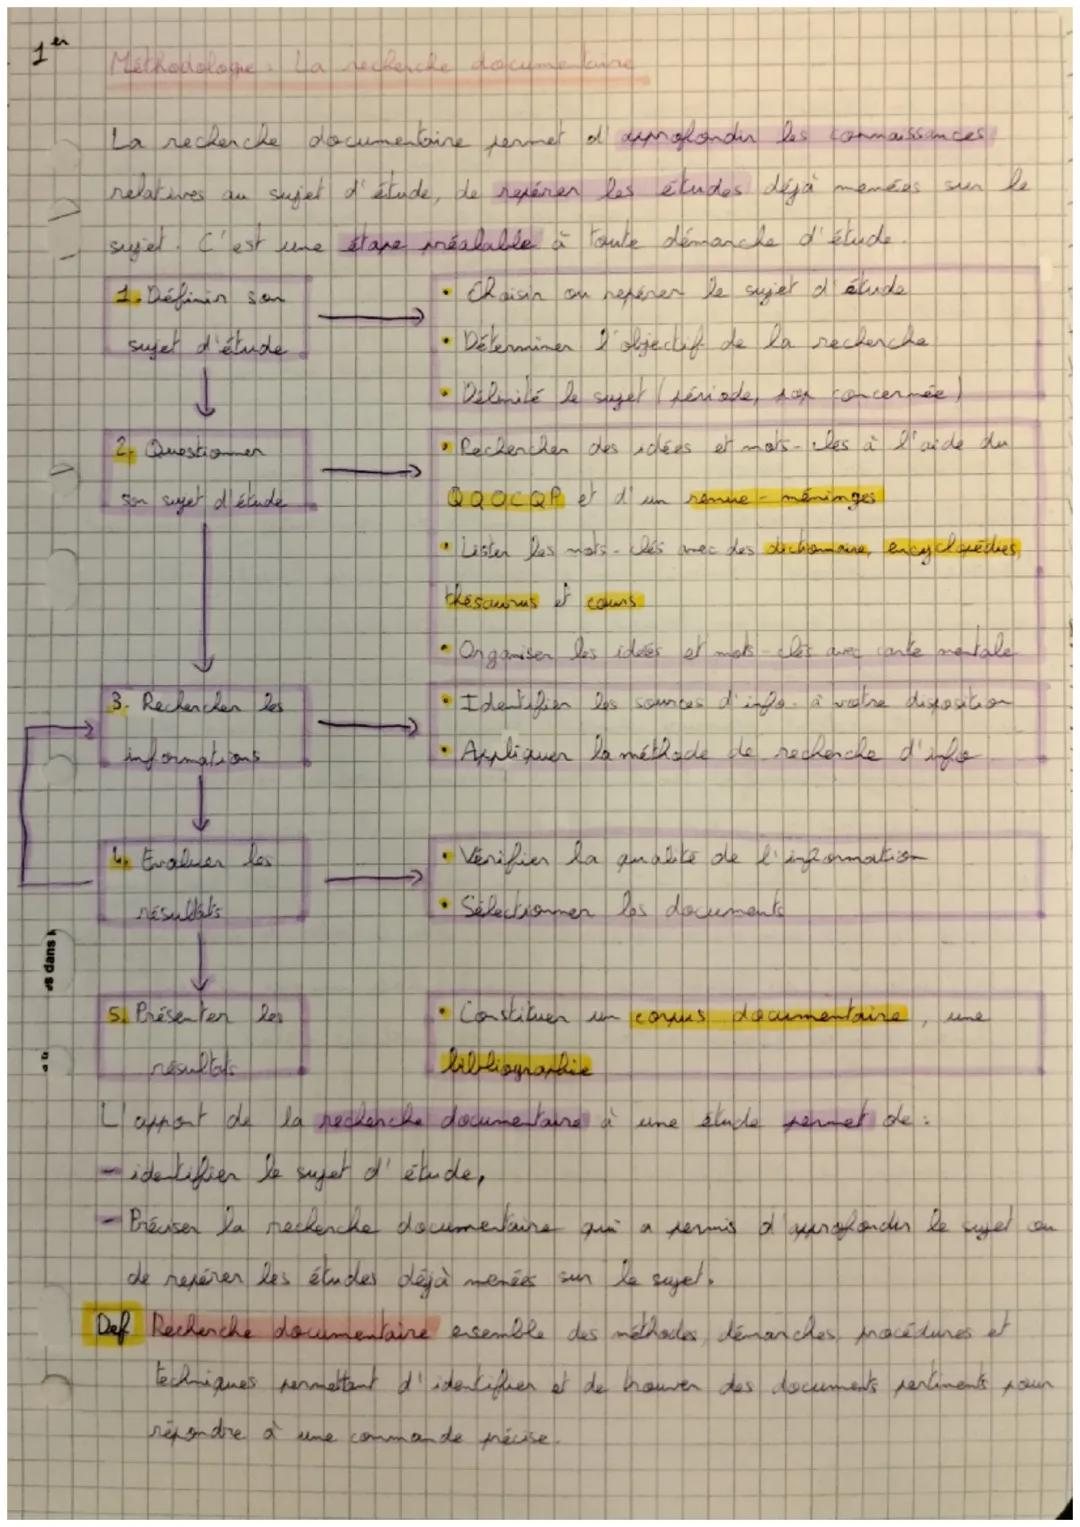 1er
Méthodologie : La recherche documentaire
La recherche documentaire permet d'approfondir les connaissances
relatives au sujet d'étude, de repérer les études déjà menées sur le
sujet. C'est une étape préalable à toute démarche d'étude.
1. Définir son
sujet d'étude
• Choisir ou repérer le sujet d'étude
• Déterminer l'objectif de la recherche
• Délimité le sujet (période, pop concernée)
2. Questionner
son sujet d'étude
• Rechercher des idées et mots-clés à l'aide du
QQOCQP et d'un remue-méninges
• Lister les mots-clés avec des dictionnaire, encyclopédies,
thésaurus et cours
• Organiser les idées et mots-clés avec carte mentale
3. Rechercher les
informations
• Identifier les sources d'info. à votre disposition
• Appliquer la méthode de recherche d'info
4. Evaluer les
résultats
• Vérifier la qualité de l'information
• Sélectionner les documents
5. Présenter les
résultats
• Constituer un corpus documentaire, une
bibliographie
L'apport de la recherche documentaire à une étude permet de :
- identifier le sujet d'étude,
- Préciser la recherche documentaire qui a permis d'approfondir le sujet ou
de repérer les études déjà menées sur le sujet.
Def Recherche documentaire esemble des méthodes, démarches, procédures et
techniques permettant d'identifier et de trouver des documents pertinents pour
répondre à une commande précise.
dans